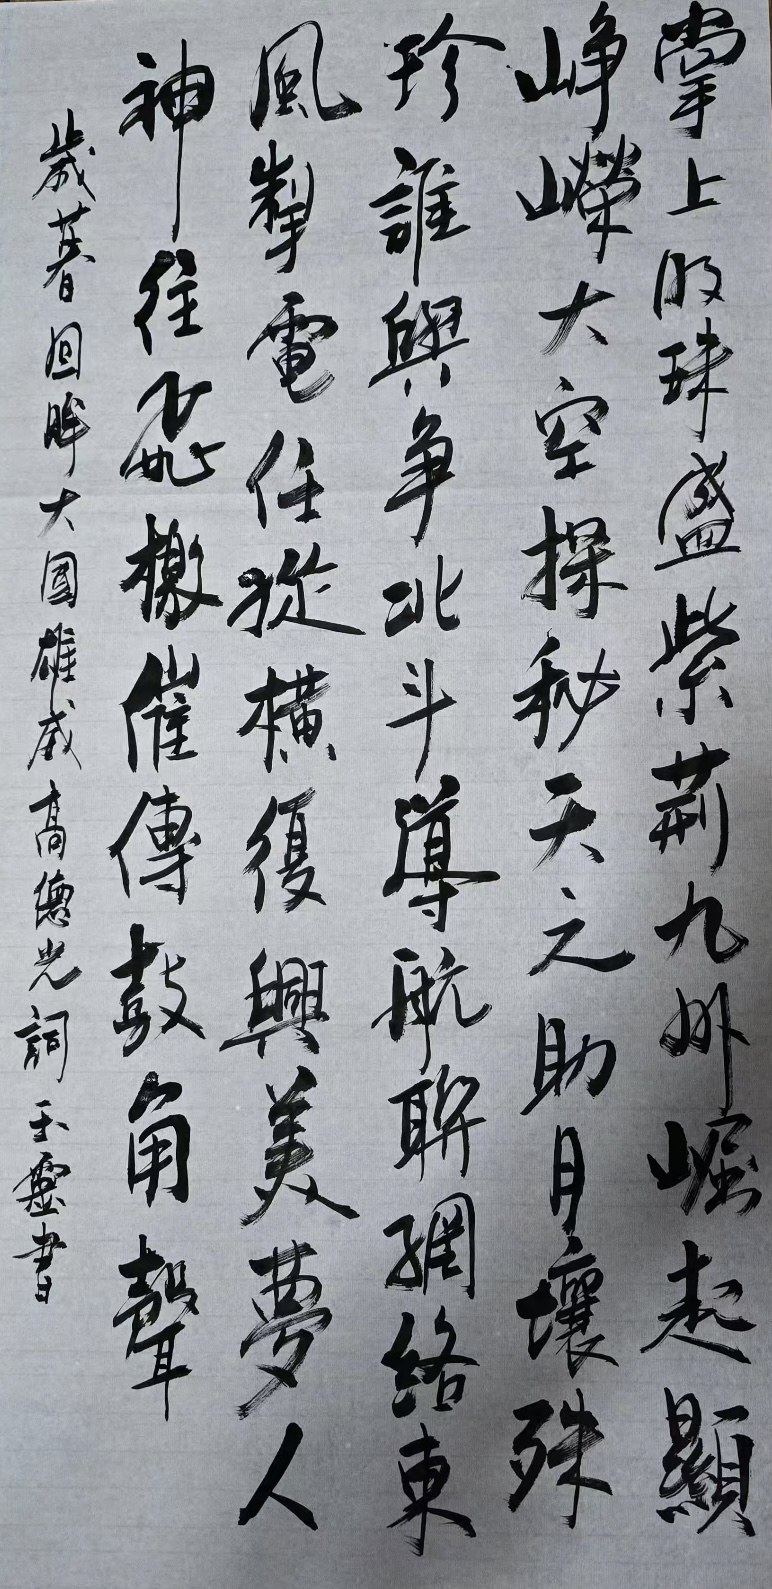 掌上明珠盛紫荊九州崛起顯
崢嶸太空探秘天之助月壤殊
珍誰與爭北斗導航聯網絡東
風掣電任從橫復興美夢人
神往飛檄催傳鼓角聲
歲暮回眸大國雄威高德光詞玉靈書